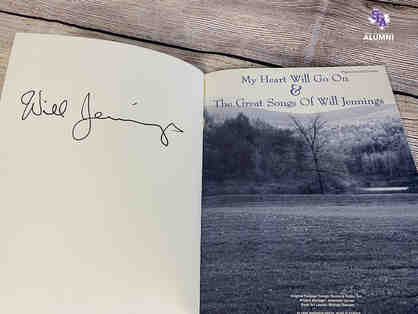 SFA
ALUMNI
Will Jennings
My Heart Will Go On
&
The Great Songs Of Will Jennings